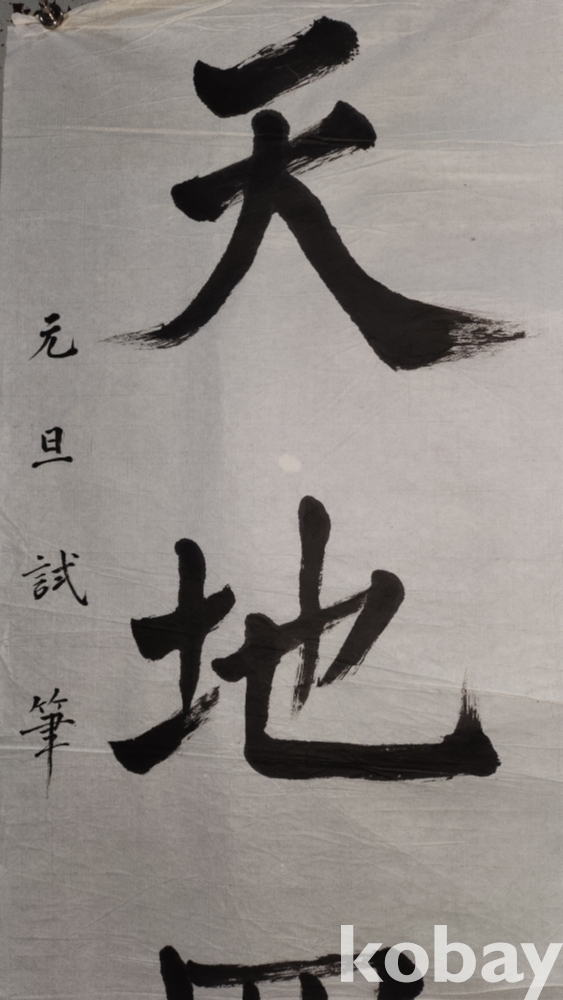 天地
元旦試筆
kobay